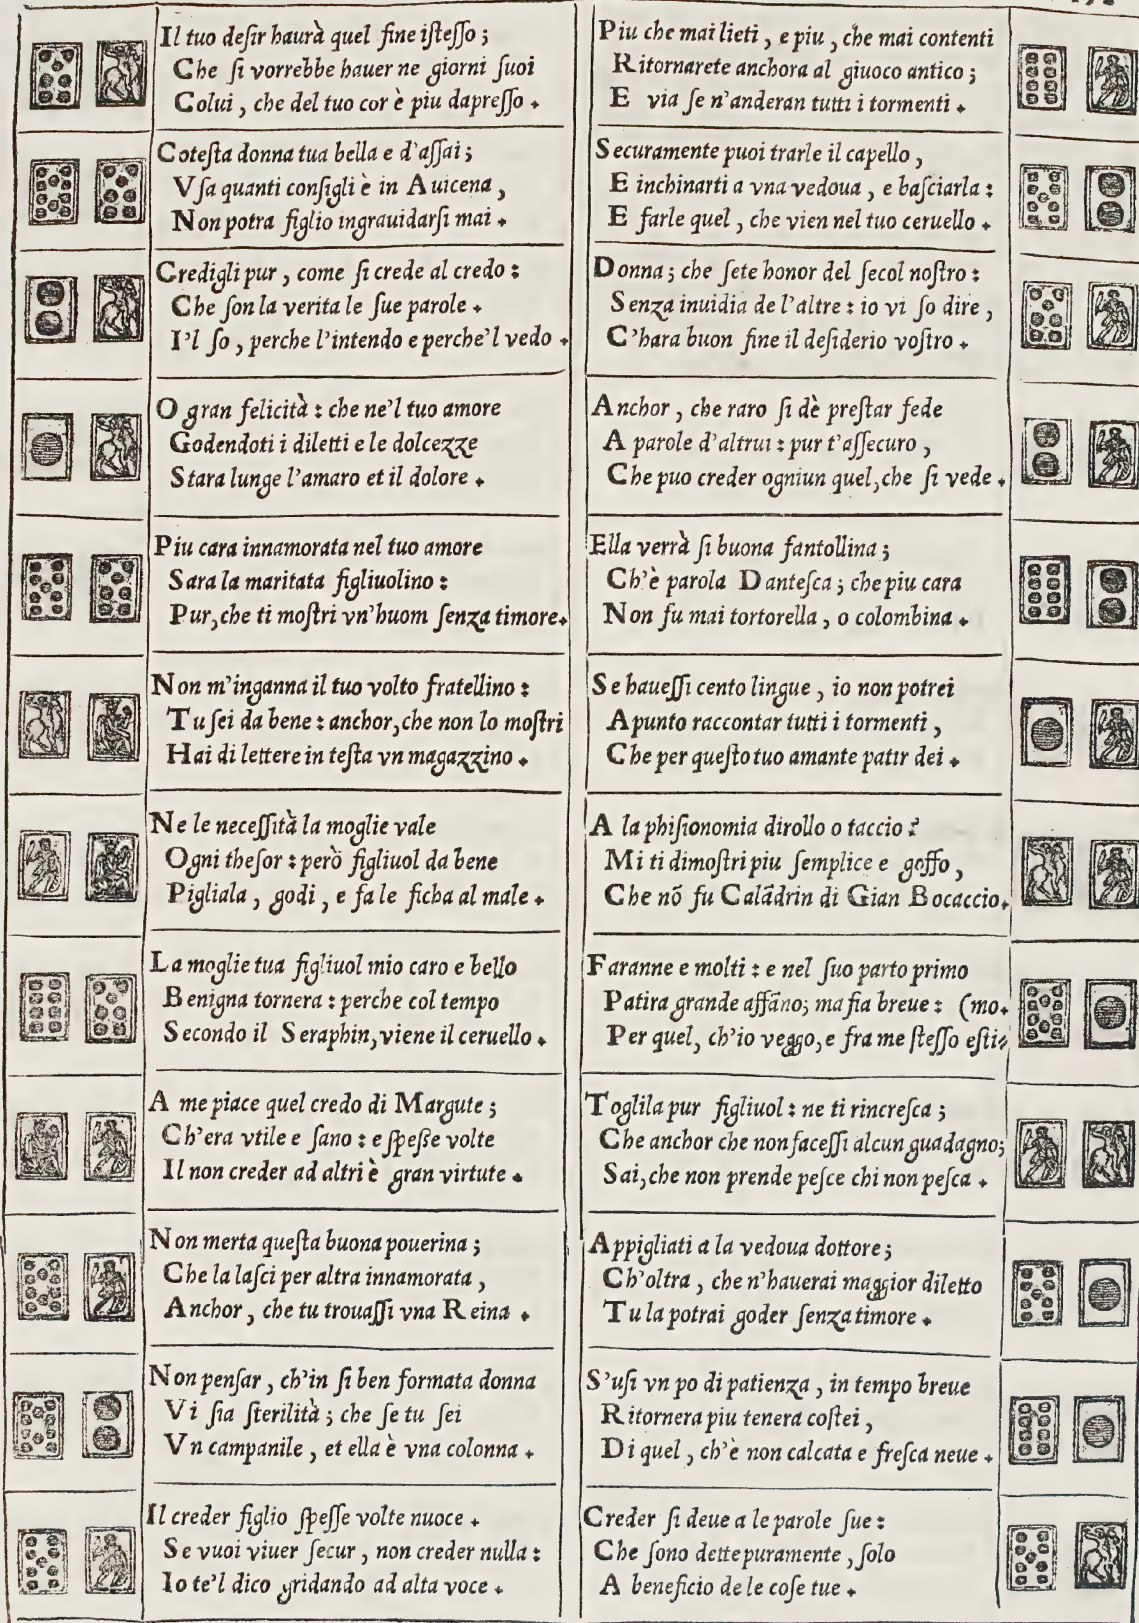 Il tuo deſir haurà quel fine iſteſſo ;
Che ſi vorrebbe hauer ne giorni ſuoi
Colui , che del tuo cor è piu dapreſſo .
Coteſta donna tua bella e d'aſſai ;
Vſa quanti conſigli è in Auicena ,
Non potra figlio ingrauidarſi mai .
Credigli pur , come ſi crede al credo :
Che ſon la verita le ſue parole .
I'l ſo , perche l'intendo e perche'l vedo .
O gran felicità : che ne'l tuo amore
Godendoti i diletti e le dolcezze
Stara lunge l'amaro et il dolore .
Piu cara innamorata nel tuo amore
Sara la maritata figliuolino :
Pur, che ti moſtri vn'huom ſenza timore.
Non m'inganna il tuo volto fratellino :
Tu ſei da bene : anchor, che non lo moſtri
Hai di lettere in teſta vn magazzino .
Ne le neceſſità la moglie vale
Ogni theſor : però figliuol da bene
Pigliala , godi , e fa le ficha al male .
La moglie tua figliuol mio caro e bello
Benigna tornera : perche col tempo
Secondo il Seraphin, viene il ceruello .
A me piace quel credo di Margute ;
Ch'era vtile e ſano : e ſpeſſe volte
Il non creder ad altri è gran virtute .
Non merta queſta buona pouerina ;
Che la laſci per altra innamorata ,
Anchor , che tu trouaſſi vna Reina .
Non penſar , ch'in ſi ben formata donna
Vi ſia ſterilità ; che ſe tu ſei
Vn campanile , et ella è vna colonna .
Il creder figlio ſpeſſe volte nuoce .
Se vuoi viuer ſecur , non creder nulla :
Io te'l dico gridando ad alta voce .
Piu che mai lieti , e piu , che mai contenti
Ritornarete anchora al giuoco antico ;
E via ſe n'anderan tutti i tormenti .
Securamente puoi trarle il capello ,
E inchinarti a vna vedoua , e baſciarla :
E farle quel , che vien nel tuo ceruello .
Donna ; che ſete honor del ſecol noſtro :
Senza inuidia de l'altre : io vi ſo dire ,
C'hara buon fine il deſiderio voſtro .
Anchor , che raro ſi dè preſtar fede
A parole d'altrui : pur t'aſſecuro ,
Che puo creder ogniun quel, che ſi vede .
Ella verrà ſi buona fantollina ;
Ch'è parola Danteſca ; che piu cara
Non fu mai tortorella , o colombina .
Se haueſſi cento lingue , io non potrei
Apunto raccontar tutti i tormenti ,
Che per queſto tuo amante patir dei .
A la phiſionomia dirollo o taccio ?
Mi ti dimoſtri piu ſemplice e goffo ,
Che nõ fu Calãdrin di Gian Bocaccio.
Faranne e molti : e nel ſuo parto primo
Patira grande affãno; ma fia breue : (mo.
Per quel, ch'io veggo, e fra me ſteſſo eſti-
Toglila pur figliuol : ne ti rincreſca ;
Che anchor che non faceſſi alcun guadagno;
Sai, che non prende peſce chi non peſca .
Appigliati a la vedoua dottore ;
Ch'oltra , che n'hauerai maggior diletto
Tu la potrai goder ſenza timore .
S'uſi vn po di patienza , in tempo breue
Ritornera piu tenera coſtei ,
Di quel , ch'è non calcata e freſca neue .
Creder ſi deue a le parole ſue :
Che ſono dette puramente , ſolo
A beneficio de le coſe tue .